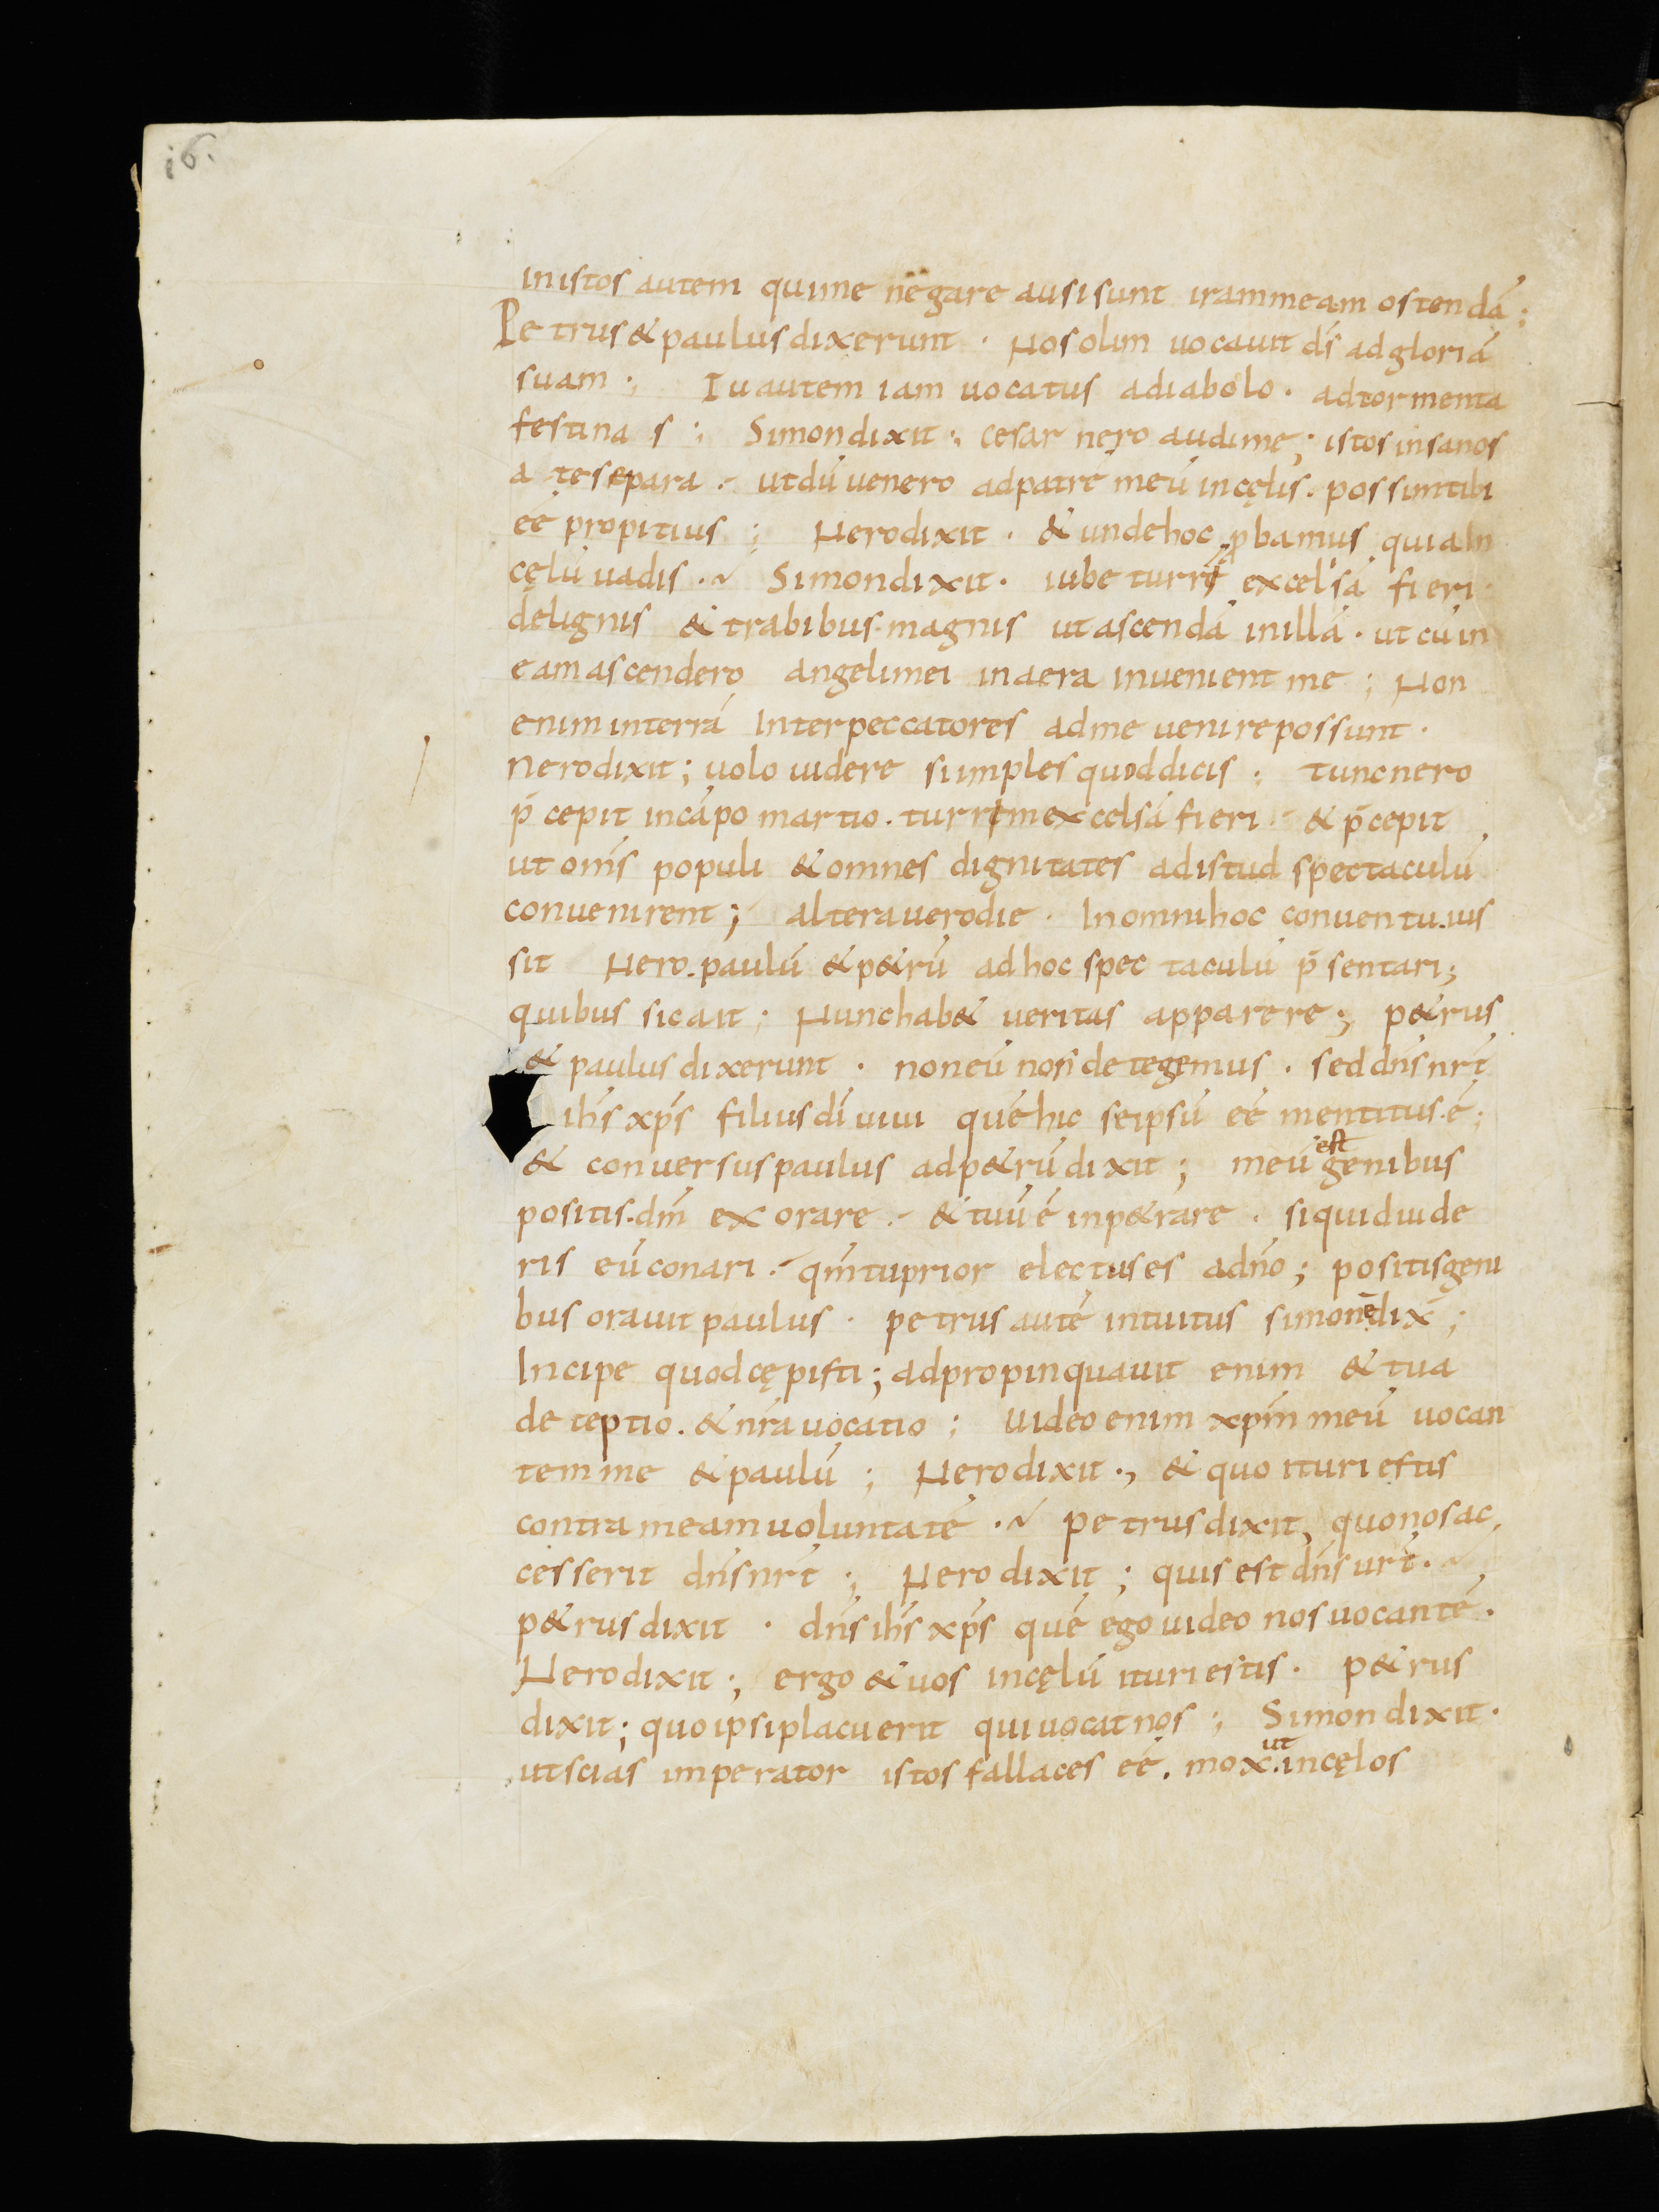 i6.
inistos autem quime negare ausisunt irammeam ostendā;
Petrus & paulus dixerunt · Nos olim uocauit d̄s adgloriā
suam ; Tu autem iam uocatus adiabolo · adtormenta
festina s ; Simon dixit ; cesar nero audime ; istos insanos
a te separa · utdū uenero adpatrē meū incęlis · possimtibi
ēe propitius ; Nero dixit · & undehoc ꝓbamus quiaIn
cęlū uadis · Simon dixit · iube turrē excelsā fieri
delignis & trabibus magnis ut ascendā inillā · ut cūin
eam ascendero angelimei inaera inuenient me ; Non
enim interrā Inter peccatores adme uenire possunt ·
Nero dixit ; uolo uidere siimples quod dicis ; tunc nero
p̄cepit incāpo martio · turrem excelsā fieri · & p̄cepit
ut om̄s populi & omnes dignitates adistud spectaculū
conuenirent ; altera uerodie · In omnihoc conuentu · uis
sit Nero · paulū & p&rū adhoc spectaculū p̄sentari ;
quibus sicait ; Nunchab& ueritas apparere ; p&rus
& paulus dixerunt · noneū nos detegemus · sed dn̄s nr̄t
ih̄s xp̄s filius dī uiui quē hic seipsū ēe mentitus · ē ;
& conuersus paulus adp&rū dixit ; meū est genibus
positis · dm̄ exorare · & tuū ē inp&rare · siquid uide
ris eū conari · qm̄ tuprior electus es adn̄o ; positisgeni
bus orauit paulus · petrus autē intuitus simonē dix̄ ;
Incipe quodcępisti ; adpropinquauit enim & tua
deteptio · & nr̄a uocatio ; Uideo enim xpm̄ meū uocan
tem me & paulū ; Nero dixit · & quo ituri estis
contra meam uoluntatē · petrus dixit, quonos ac
cesserit dn̄s nr̄t ; Nero dixit ; quis est dn̄s ur̄t ·
p&rus dixit · dn̄s ih̄s xp̄s quē ego uideo nos uocantē ·
Nero dixit ; ergo & uos incęlū ituri estis · p&rus
dixit ; quo ipsi placuerit qui uocat nos ; Simon dixit ·
utscias imperator istos fallaces ēe · mox · ut incęlos